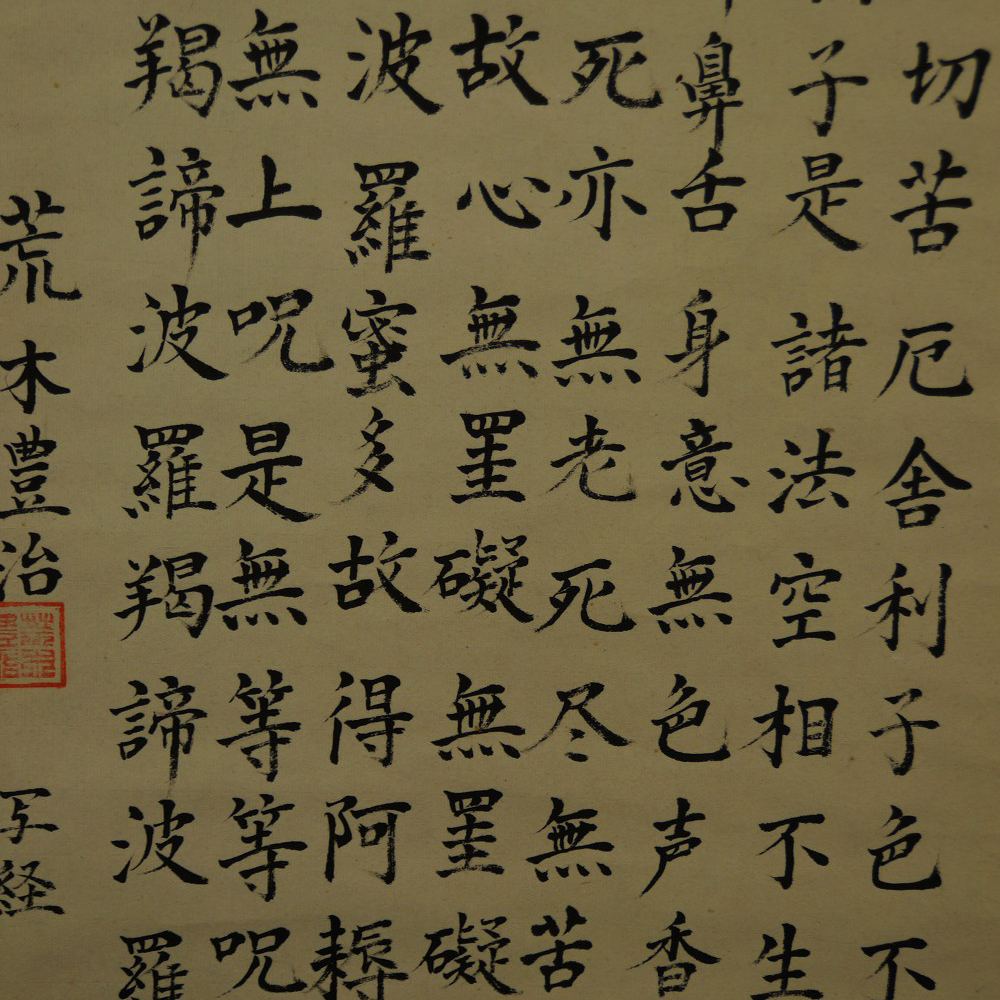 切苦厄舎利子色不
子是諸法空相不生
鼻舌身意無色声香
死亦無老死尽無苦
故心無罣礙無罣礙
波羅蜜多故得阿耨
無上呪是無等等呪
羯諦波羅羯諦波羅
荒木豊治写経